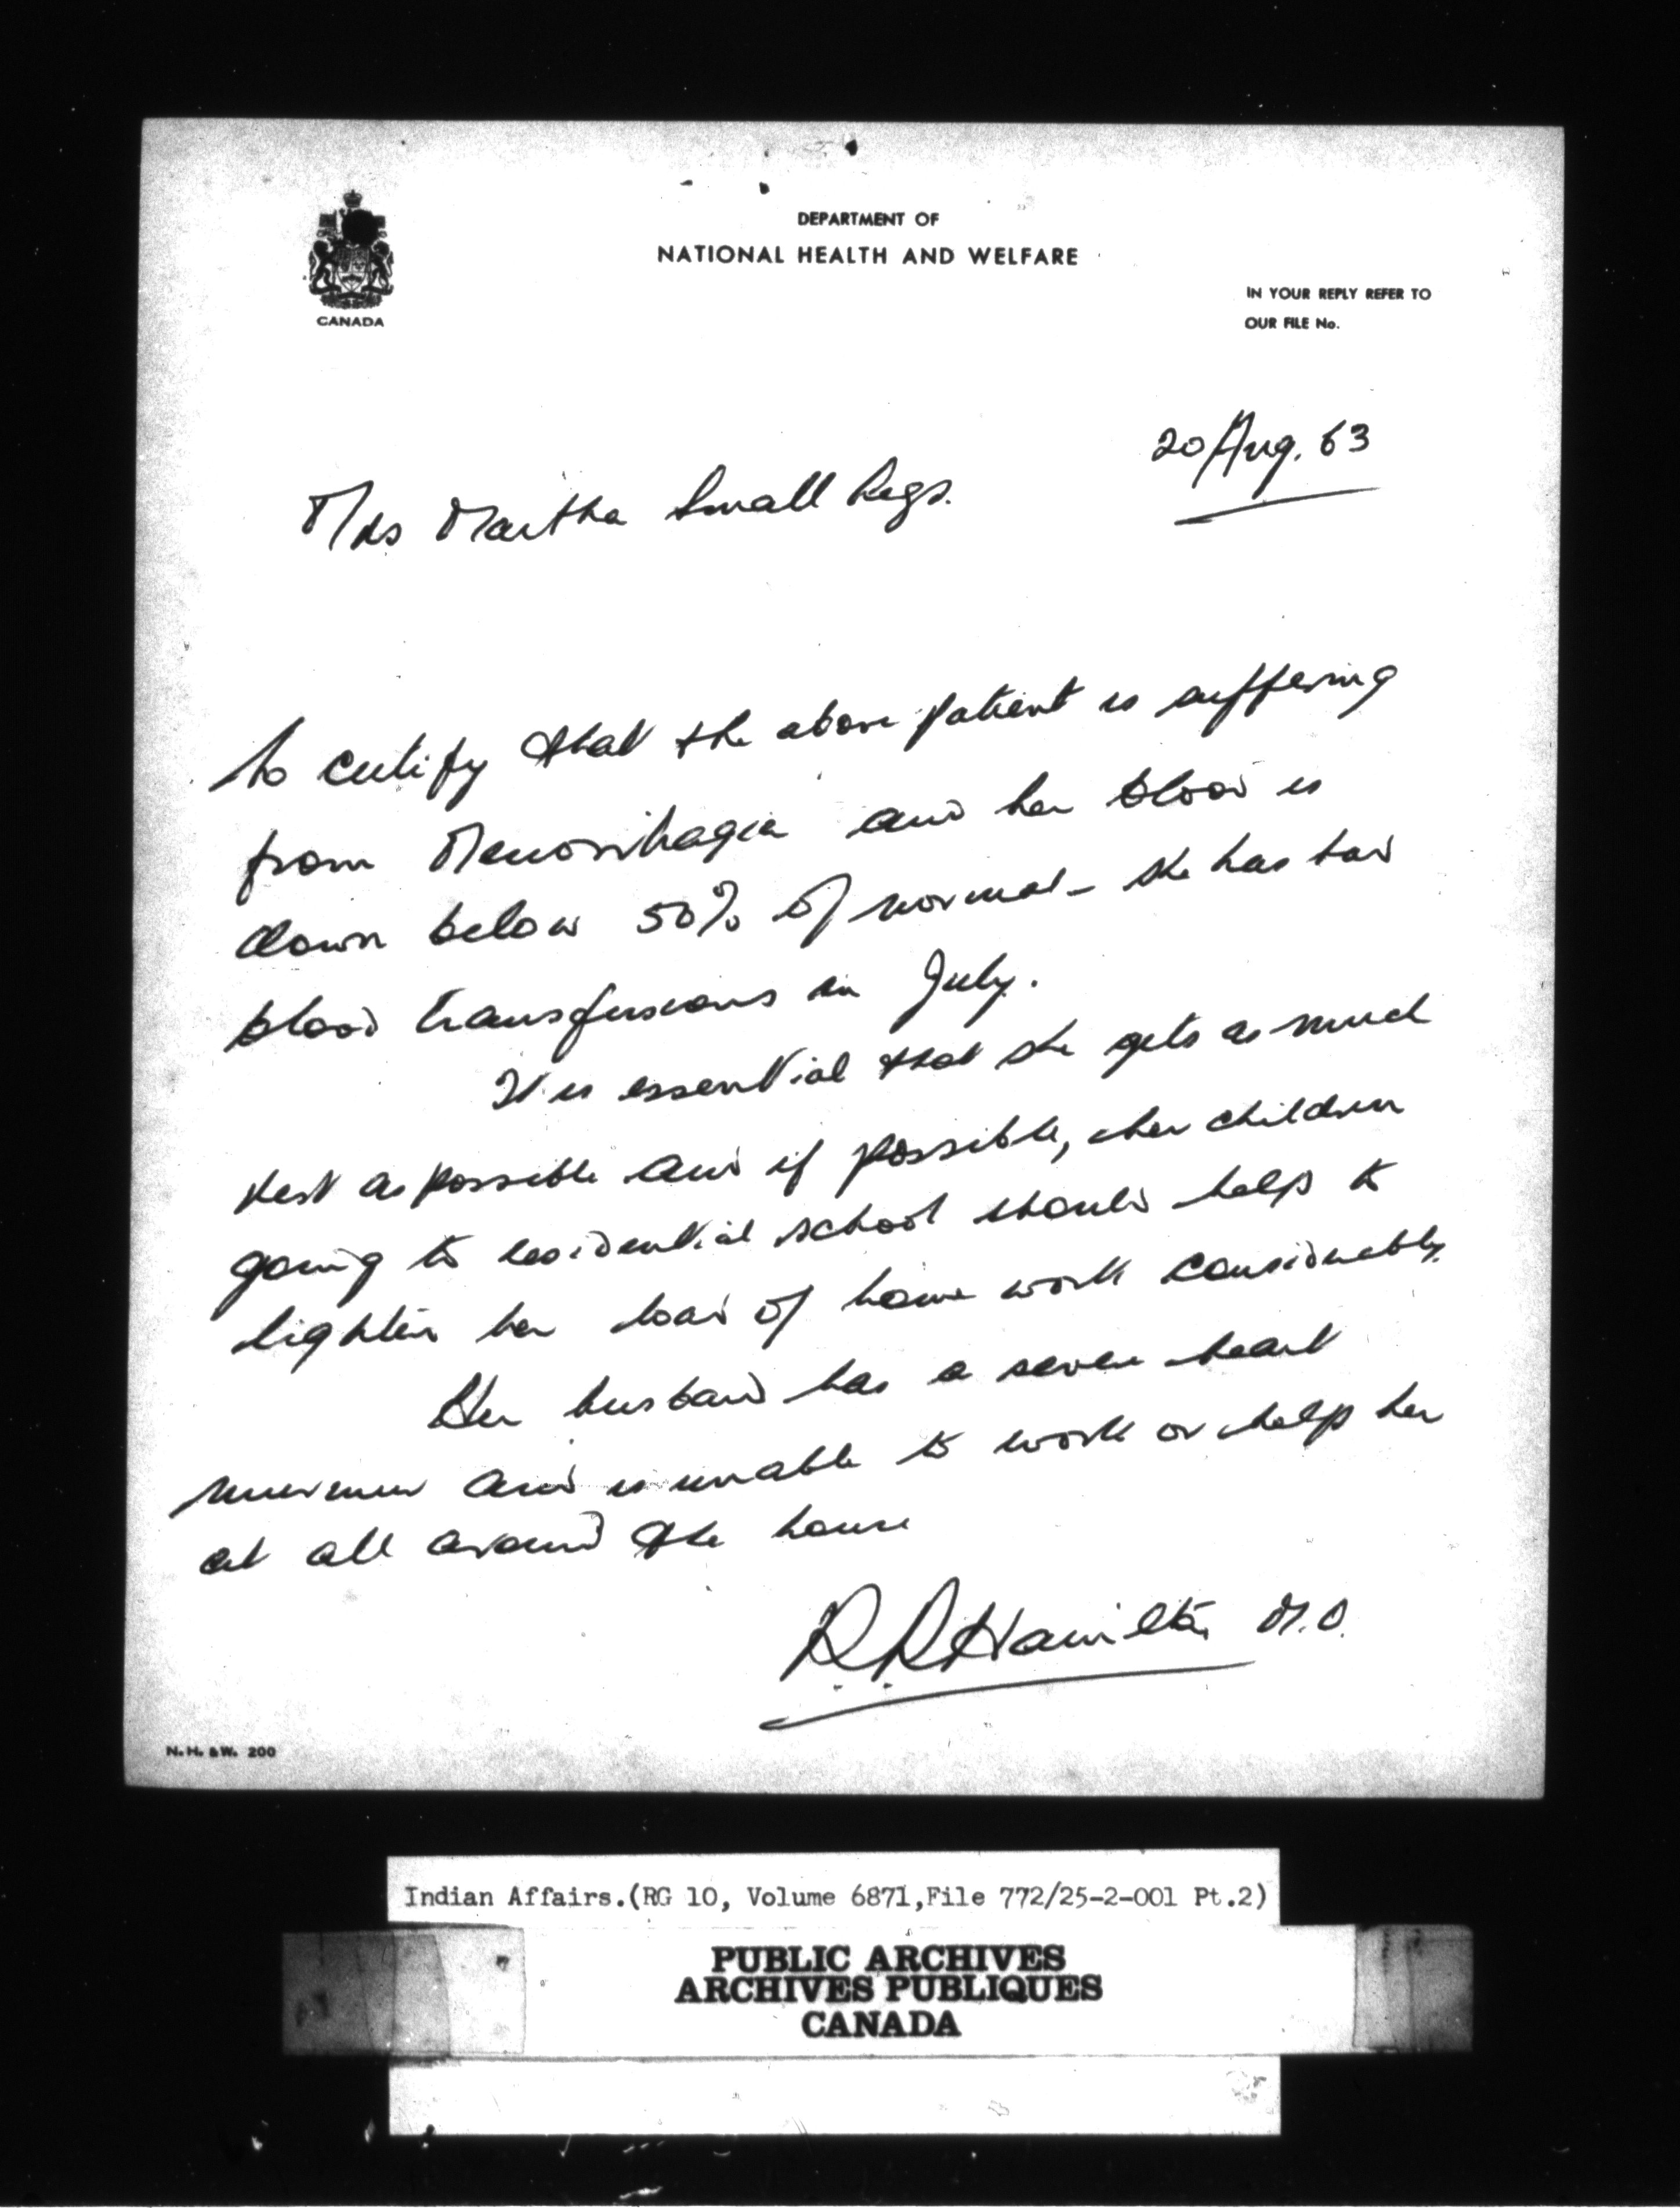 DEPARTMENT OF
NATIONAL HEALTH AND WELFARE
CANADA
IN YOUR REPLY REFER TO
OUR FILE No.
20 Aug. 63
Mrs Martha Small Legs.
to certify that the above patient is suffering
from Menorrhagia and her blood is
down below 50% of normal - she has had
blood transfusions in July.
It is essential that she gets as much
rest as possible and if possible, her children
going to residential school should help to
lighten her load of home work considerably.
Her husband has a severe heart
murmur and is unable to work or help her
at all around the house
R. R. Hamilton M.D.
N. H. & W. 200
Indian Affairs.(RG 10, Volume 6871,File 772/25-2-001 Pt.2)
PUBLIC ARCHIVES
ARCHIVES PUBLIQUES
CANADA